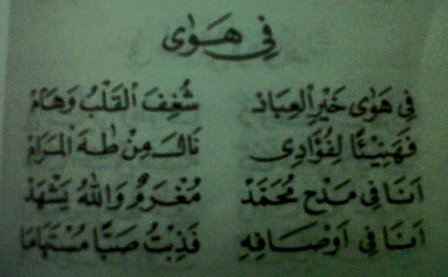 فِي هَوٰى
فِي هَوٰى خَيْرِ الْعِبَادْ شُغِفَ الْقَلْبُ وَهَامْ
فَهَنِيْئًا لِفُؤَادِى نَالَ مِنْ طٰهَ الْمَرَامْ
اَنَا فِي مَدْحِ مُحَمَّدْ مُغْرَمٌ وَاللهُ يَشْهَدْ
اَنَا فِي اَوْصَافِهِ فَذِبْتُ صَبًّا مُسْتَهَامَا